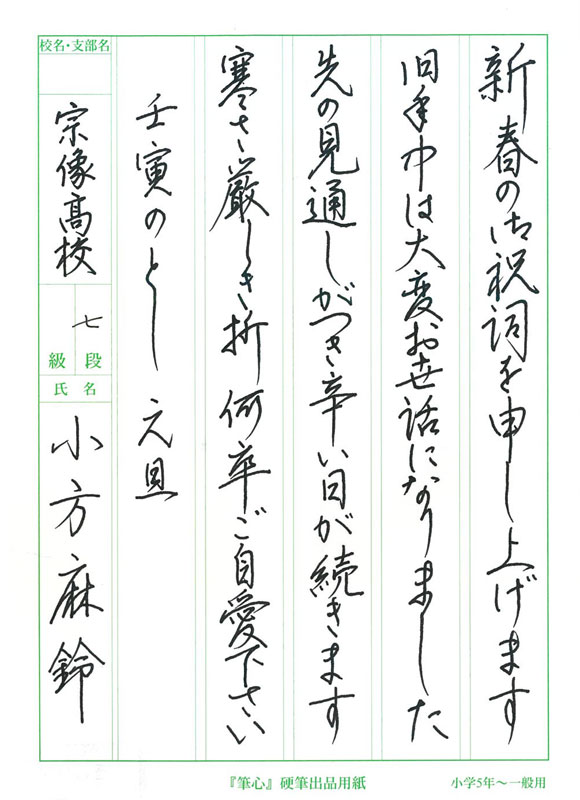 新春の御祝詞を申し上げます
旧年中は大変お世話になりました
先の見通しがつき辛い日が続きます
寒さ厳しき折 何卒ご自愛下さい
壬寅のとし 元旦
校名・支部名
宗像高校
七
段
級
氏名
小方麻鈴
『筆心』硬筆出品用紙
小学5年〜一般用